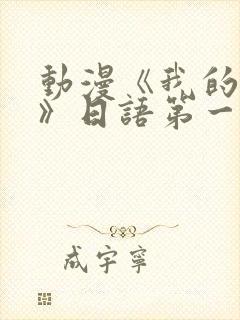 動漫《我的
》日語第一
成宇寧